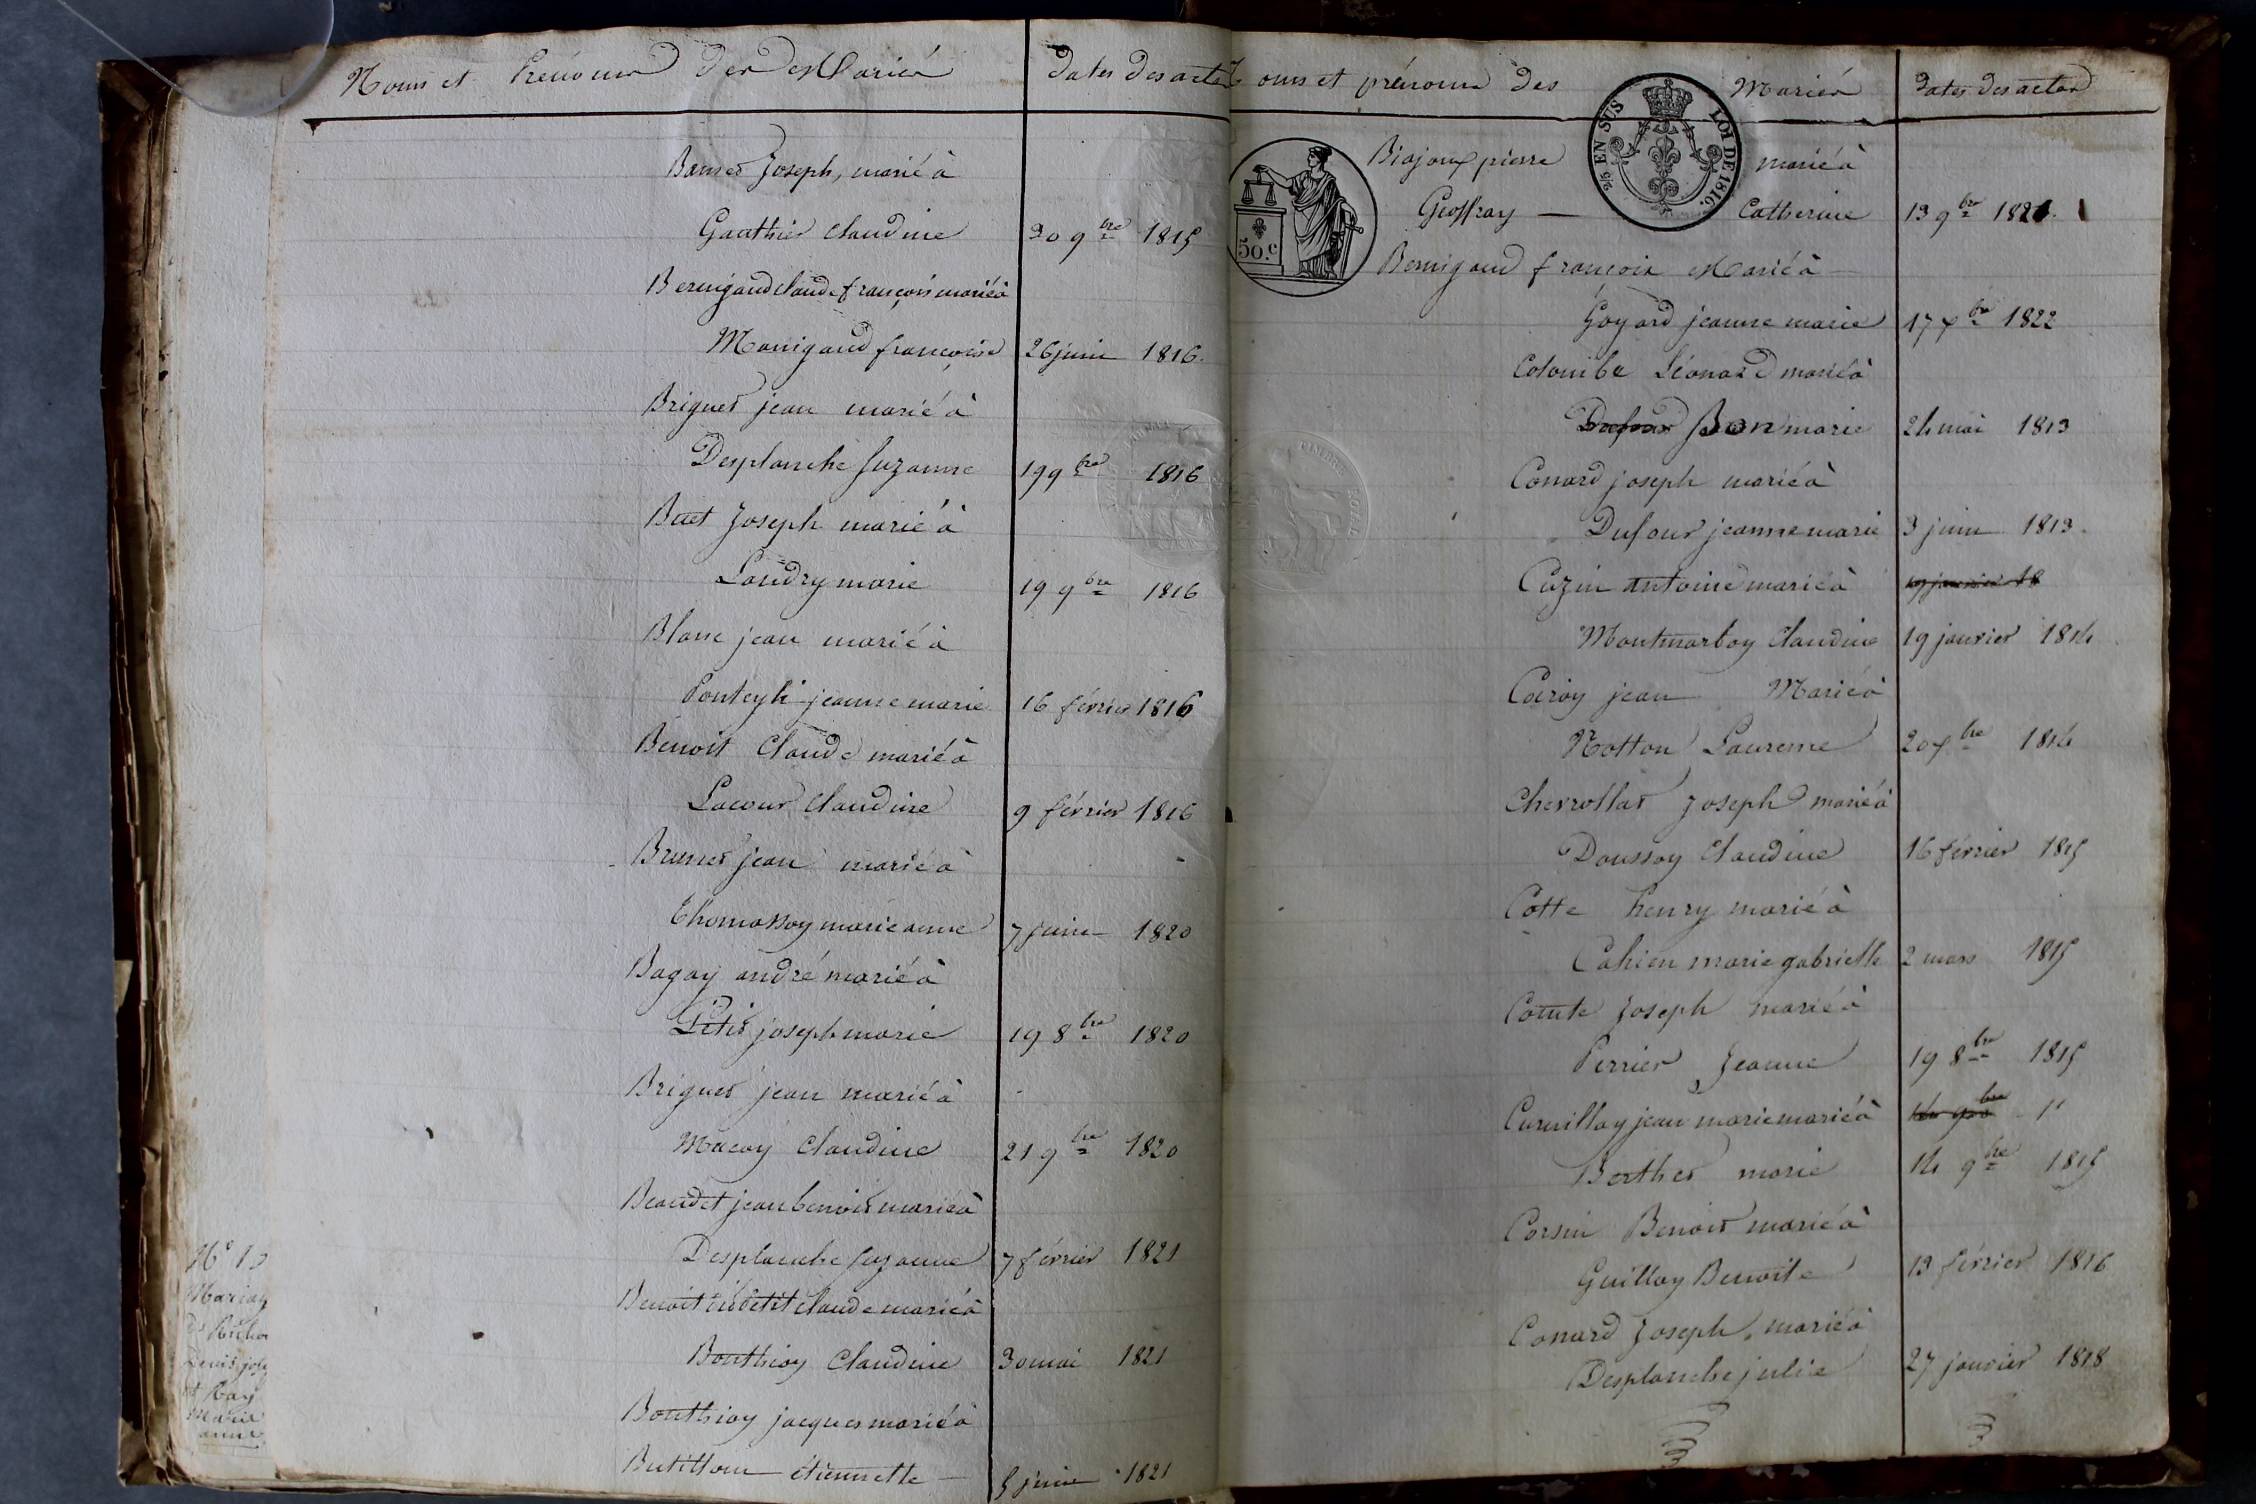 Noms et Prénoms des Mariés
Dates des actes
Bornet Joseph, marié à
Gauthier Claudine 30 9bre 1815
Bernigaud Claude françois marié à
Monigaud françoise 26 juin 1816.
Briguet jean marié à
Desplanche Suzanne 19 9bre 1816
Buet Joseph marié à
Landry marie 19 9bre 1816
Blanc jean marié à
jeanne marie 16 février 1816
Benoit Claude marié à
Lacour Claudine 9 février 1816
Brunet jean marié à
Thomassoy marie anne 7 juin 1820
Bagay andré marié à
Petit joseph marie 19 8bre 1820
Briguet jean marié à
Macoy Claudine 21 9bre 1820
Beaudet jean benoit marié à
Desplanche Suzanne 7 février 1821
Benoit dit Petit Claude marié à
Bouthioy Claudine 30 mai 1821
Bouthioy jacques marié à
Butillon étiennette 5 juin 1821
Noms et prénoms des Mariés
Dates des actes
2/5 EN SUS
LOI DE 1816.
50.c
TIMBRE ROYAL
Biajoux pierre marié à
Geoffray — Catherine 13 9bre 1821.
Bernigaud françois Marié à —
Goyard jeanne marie 17 Xbre 1822
Colombe Léonard marié à
Dufour Bon marie 24 mai 1813
Conard joseph marié à
Dufour jeanne marie 3 juin 1813.
Cuzin antoine marié à 19 janvier 18
Montmartoy Claudine 19 janvier 1814
Coiroy jean Marié à
Notton Laurence 20 Xbre 1814
Chevrollat Joseph marié à
Doussoy Claudine 16 février 1815
Cotte henry marié à
Cahien marie gabrielle 2 mars 1815
Comte Joseph marié à
Perrier Jeanne 19 8bre 1815
Curvillay jean marie marié à
Berthet marie 14 9bre 1815
Corsin Benoit marié à
Guilloy Benoite 13 février 1816
Conard Joseph, marié à
Desplanche julie 27 janvier 1818
N° 10
Denis jose
et Ray
Marie
anne